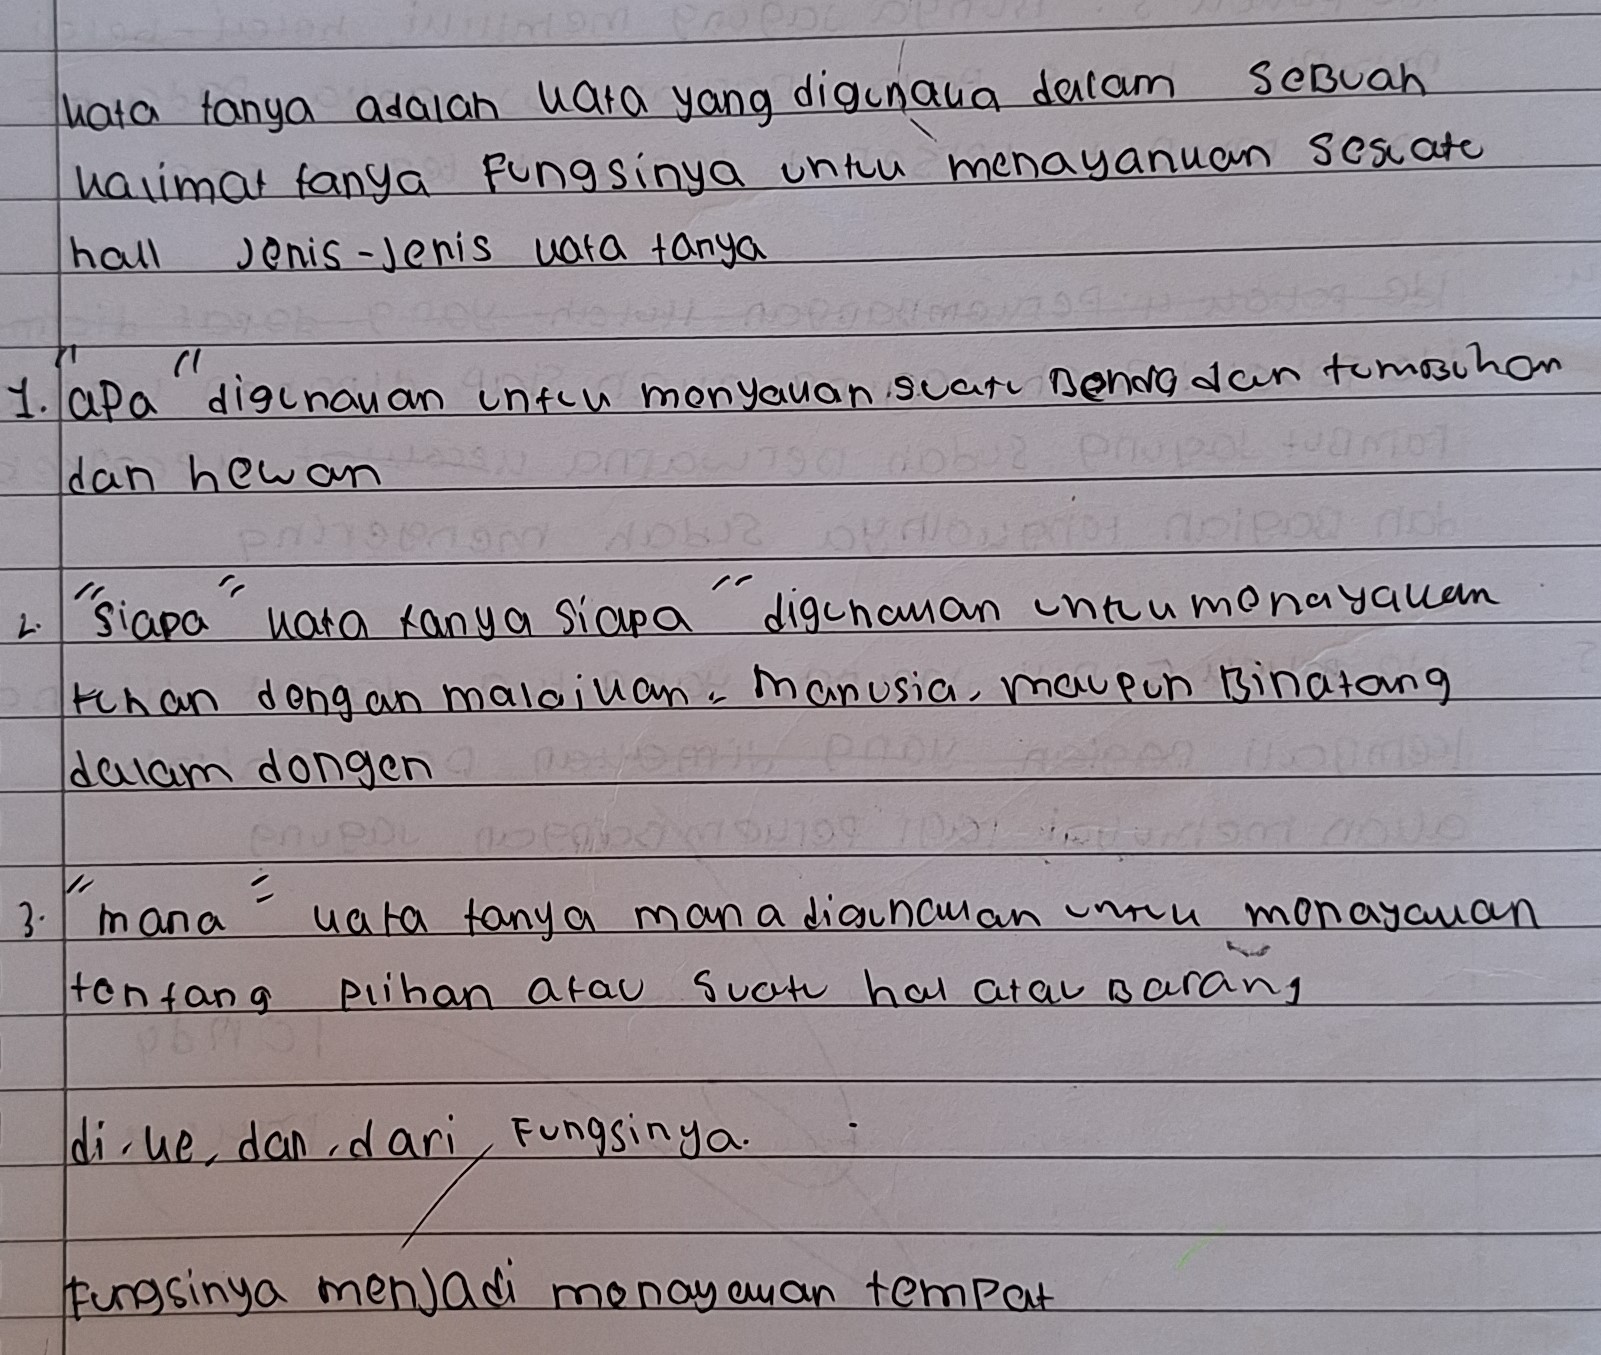 kata tanya adalah kata yang digunaka dalam seBuah
kalimat tanya Fungsinya untuu menayanuan sesuatu
hall Jenis-Jenis kata tanya
1. "aPa" digunakan untuu menyakan suatu Benda dan tumBuhan
dan hewan
2. "Siapa" kata tanya siapa" digunakan untuu menayakan
tuhan dengan malaikan, manusia, maupun Binatang
dalam dongen
3. "mana" kata tanya mana digunakan untuu menayakan
tentang plihan atau suatu hal atau Barang
di, ke, dan, dari, Fungsinya.
Fungsinya menJadi menayakan temPat